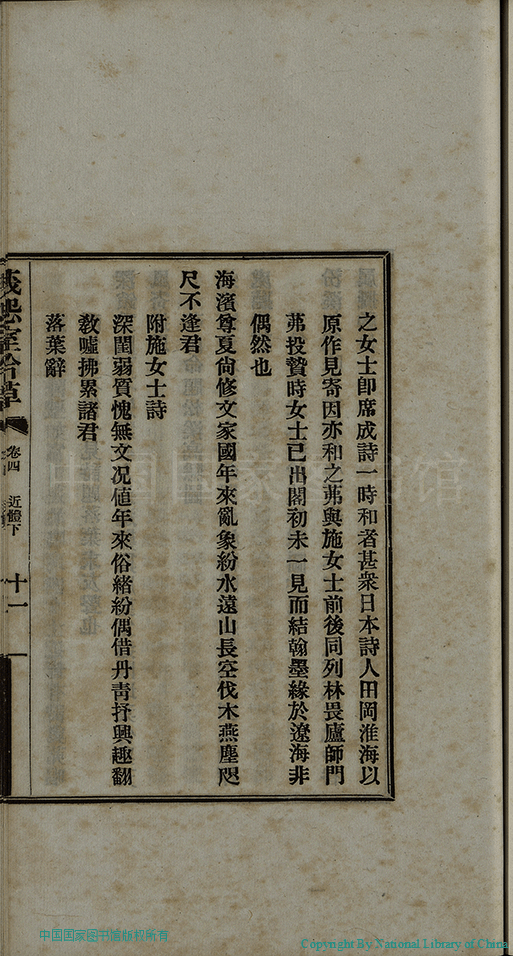 之女士卽席成詩一時和者甚衆日本詩人田岡淮海以
原作見寄因亦和之茀與施女士前後同列林畏廬師門
茀投贄時女士已出閣初未一見而結翰墨緣於遼海非
偶然也
海濱尊夏尙修文家國年來亂象紛水遠山長空伐木燕塵咫
尺不逢君
附施女士詩
深閨弱質愧無文况値年來俗緖紛偶借丹靑抒興趣翻
敎噓拂累諸君
落葉辭
室吟草
卷四 近體下
十一
中国国家图书馆
中国国家图书馆版权所有
Copyright By National Library of China